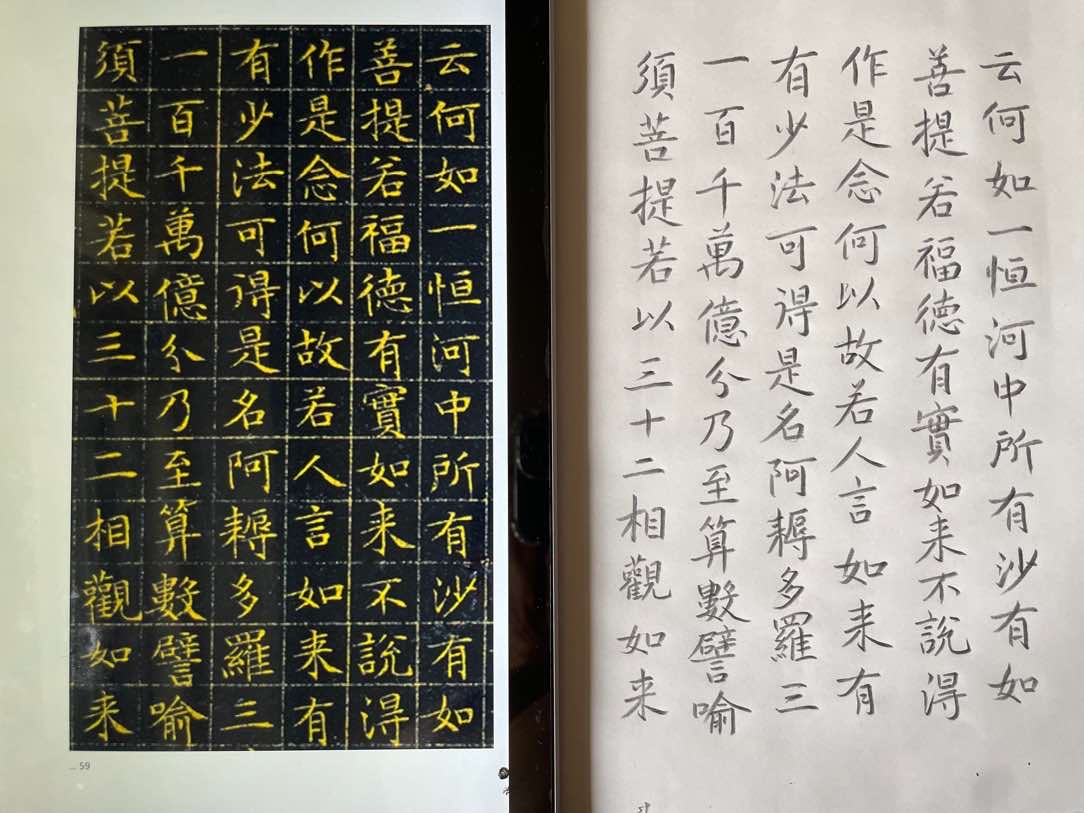 云何如一恒河中所有沙有如
善提若福德有實如来不說得
作是念何以故若人言如来有
有少法可得是名阿耨多羅三
一百千萬億分乃至算數譬喻
須菩提若以三十二相觀如来
59
云何如一恒河中所有沙有如
善提若福德有實如来不說得
作是念何以故若人言如来有
有少法可得是名阿耨多羅三
一百千萬億分乃至算數譬喻
須菩提若以三十二相觀如来